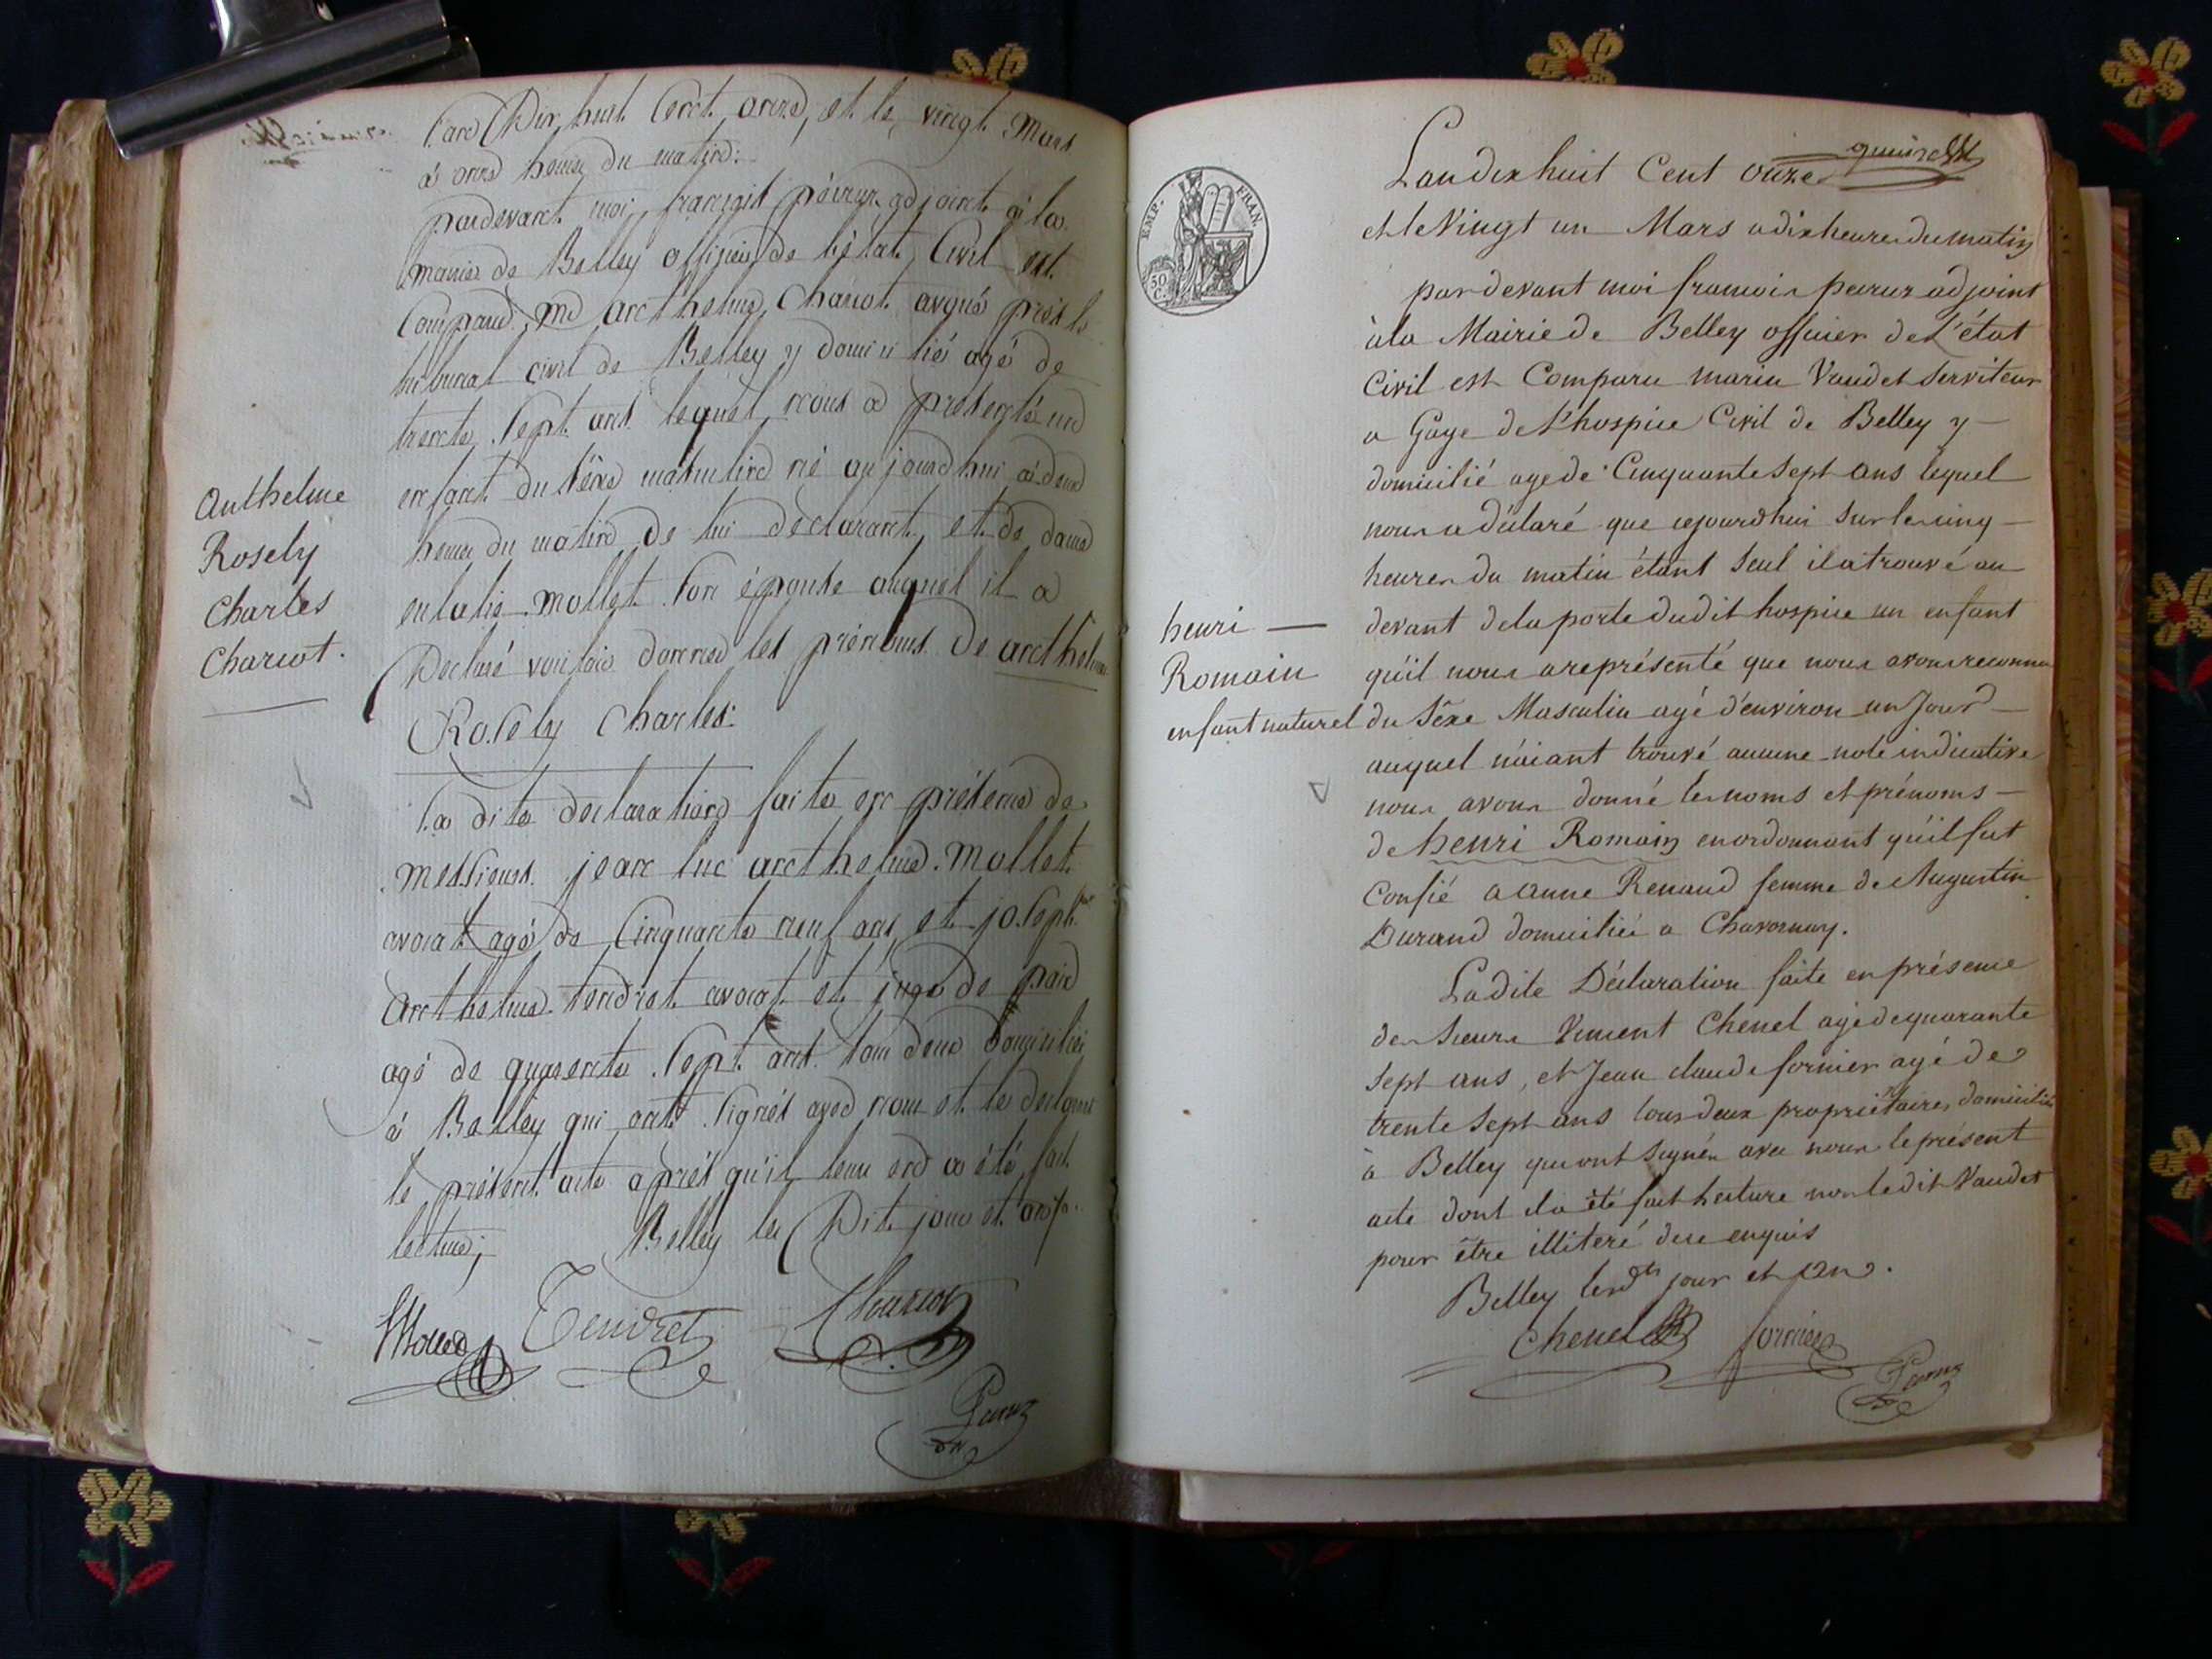 L'an Dix huit Cent onze, et le vingt Mars
à onze heures du matin:
pardevant moi françois péuruz adjoint à la
mairie de Belley officier de l'état Civil est
Comparu Me anthelme Chariot avoué près le
tribunal civil de Belley y domicilié agé de
trente sept ans lequel nous a présenté un
enfant du séxe masculin né aujourdhui à deux
heures du matin de lui déclarant, et de dame
eulalie mollet son épouse auquel il a
Declaré vouloir donner les prénoms De anthelme
Rosely Charles:
Anthelme
Rosely
Charles
Chariot.
la dite déclaration faite en présence de
messieurs jean luc anthelme mollet
avocat agé de Cinquante neuf ans et joseph
anthelme tendret avocat et juge de paix
agé de quarente sept ans tous deux domiciliés
à Belley qui ont signés avec nous et le déclarant
le présent acte après qu'il leur en a été fait
lecture; Belley les Dit jour et an
Tendret Chariot
Peuruz
L'an dix huit Cent onze
et le Vingt un Mars a dix heures du matin
par devant moi francois peuruz adjoint
à la Mairie de Belley officier de L'état
Civil est Comparu marin Vaudet Serviteur
a Gage de l'hospice Civil de Belley y
domicilié age de Cinquante Sept ans lequel
nous a déclaré que cejourdhui sur les cinq
heures du matin étant Seul il a trouvé au
devant de la porte dudit hospice un enfant
qu'il nous a représenté que nous avons reconnu
du Séxe Masculin agé d'environ un Jour
auquel n'aiant trouvé aucune note indicative
nous avons donné les noms et prénoms
de henri Romain en ordonnant qu'il fut
Confié a anne Renaud femme de Augustin
Durand domicilié a Chavornay.
henri
Romain
enfant naturel
Ladite Déclaration faite en présence
des Sieurs Vincent Chenel agé de quarante
Sept ans, et Jean claude fornier agé de
trente Sept ans tous deux propriétaires domiciliés
à Belley qui ont Signés avec nous le présent
acte dont il a été fait lecture non ledit Vaudet
pour être illiteré de ce enquis
Belley les dts jour et an.
Chenel fornier
Peuruz
EMP. FRAN.
50 C.